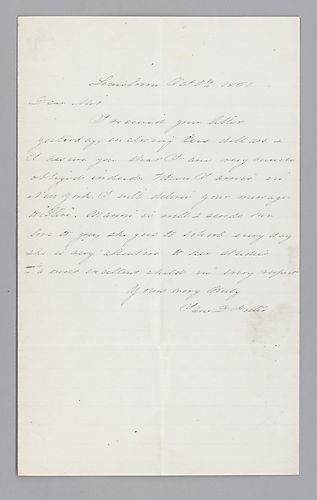 Oct 6th
Dear Mrs
I received your letter
yesterday, enclosing
I assure you that I am very much
obliged indeed. When I arrive in
New York, I will deliver your message
is well & sends her
love to you, she goes to school every day
she is very attentive to her studies
& a most excellent child in every respect
Yours very truly